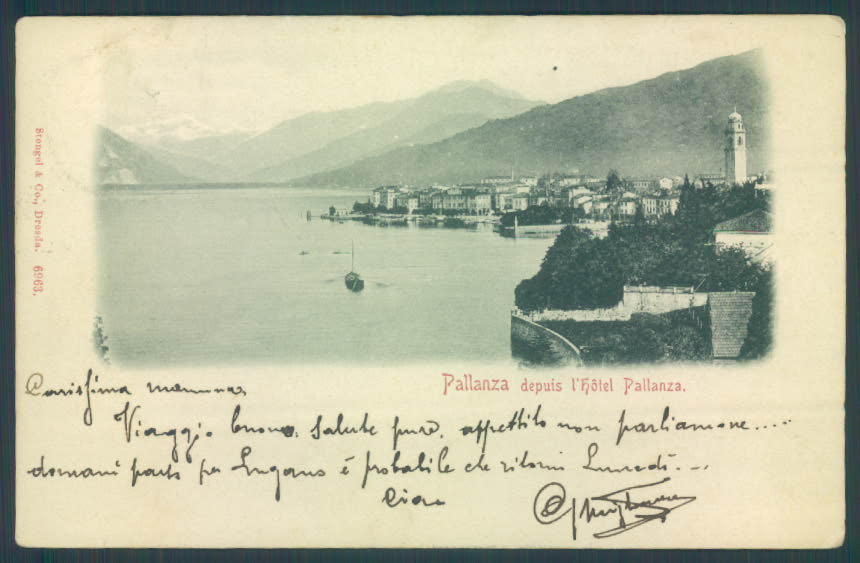 Stengel & Co., Dresda. 6963.
Pallanza depuis l'Hôtel Pallanza.
Carissima mamma,
Viaggio buono, salute pure, appetito non parliamone.....
domani parto per Lugano è probabile che ritorni Lunedì...
Ciao